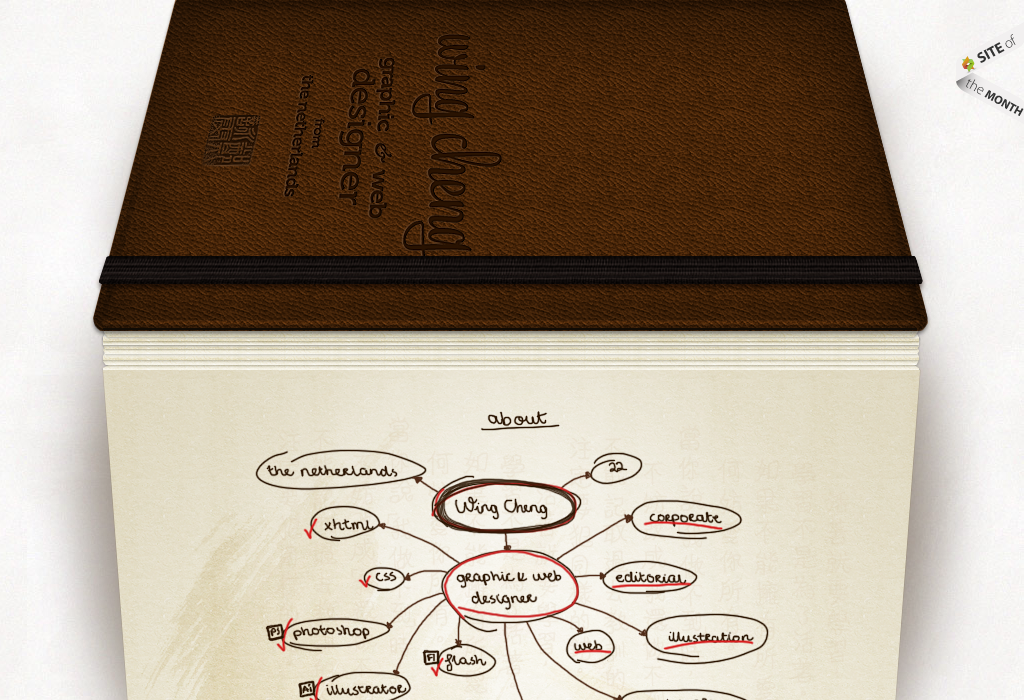 wing cheng
graphic & web
designer
from
the netherlands
SITE of
the MONTH
about
the netherlands
22
Wing Cheng
xhtml
corporate
css
graphic & web
designer
editorial
Ps
photoshop
illustration
web
Fl
flash
Ai
illustrator